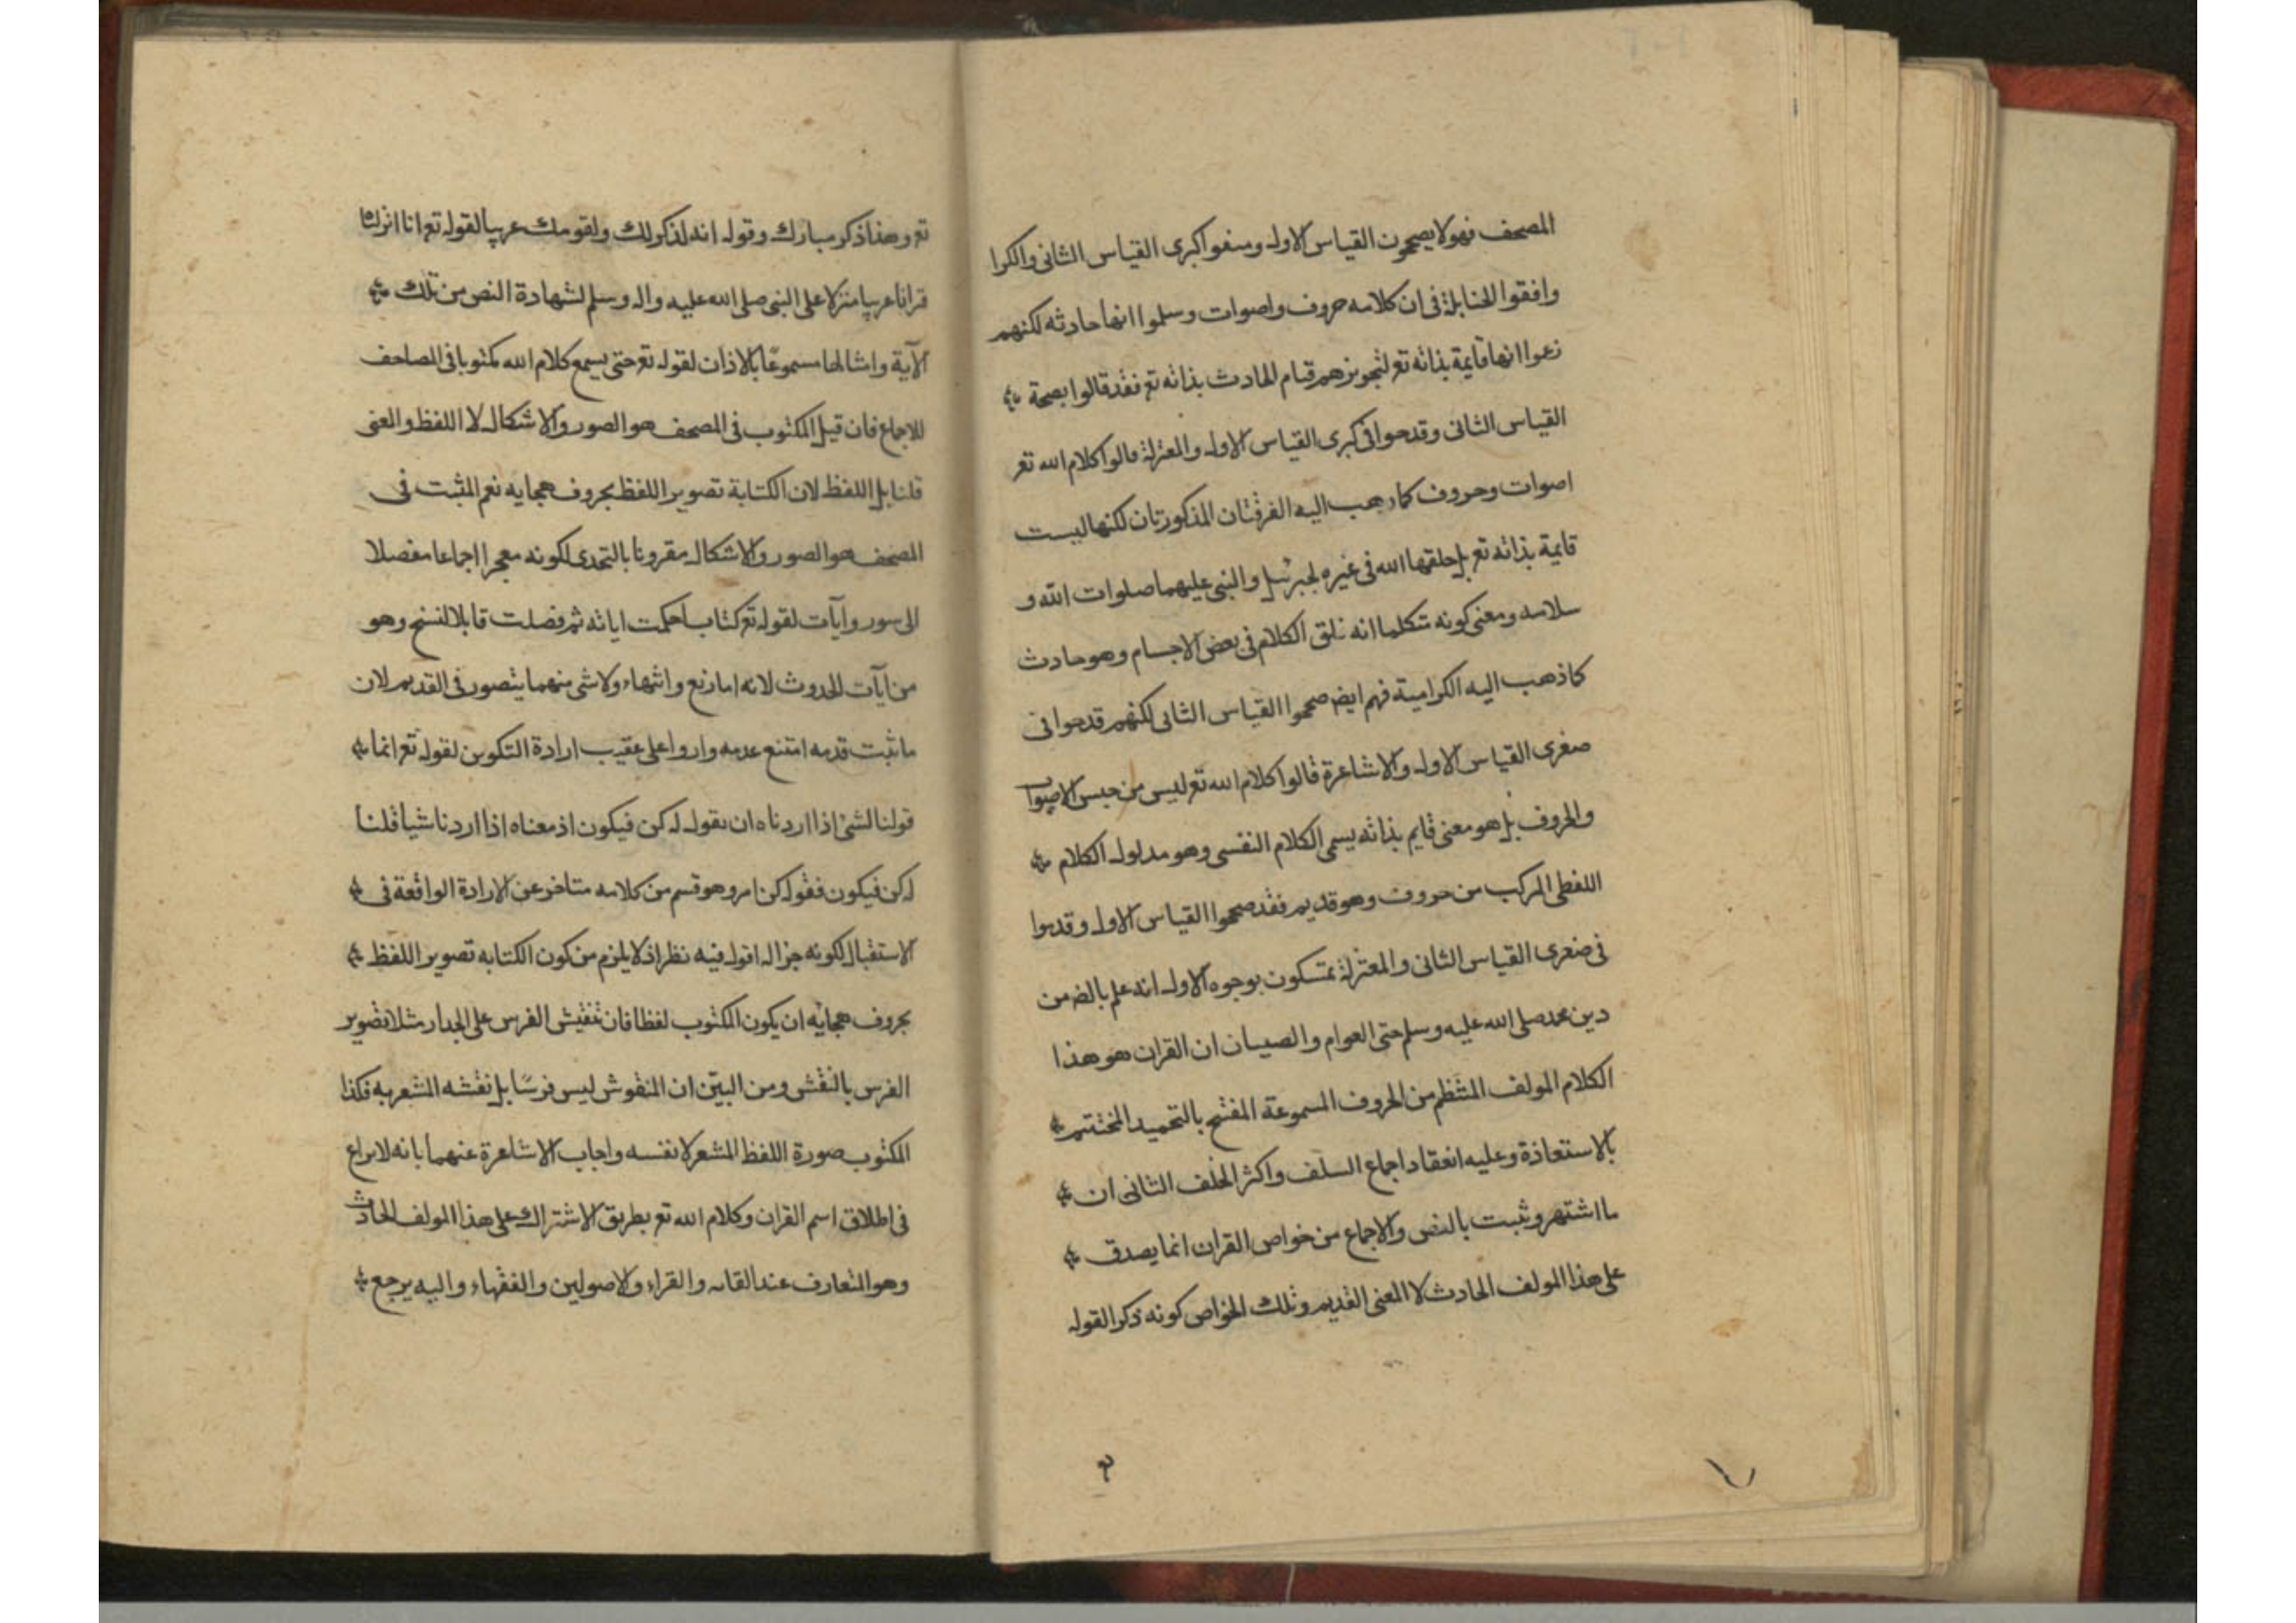 المصحف فهولا يصححون القياس الاول ومنعوا كبرى القياس الثانى والكرا
وافقوا الحنابلة فى ان كلامه حروف واصوات وسلموا انها حادثه لكنهم
زعموا انها قايمة بذاته تع لتجويزهم قيام الحادث بذاته تع فقد قالوا بصحة
القياس الثانى وقدحوا فى كبرى القياس الاول والمعتزلة قالوا كلام الله تع
اصوات وحروف كما ذهب اليه الفرقتان المذكورتان لكنها ليست
قايمة بذاته تع بل خلقها الله فى غيره لجبرئيل والنبى عليهما صلوات الله و
سلامه ومعنى كونه متكلما انه خلق الكلام فى بعض الاجسام وهو حادث
كما ذهب اليه الكرامية فهم ايض صححوا القياس الثانى لكنهم قدحوا فى
صغرى القياس الاول والاشاعرة قالوا كلام الله تع ليس من جنس الاصوات
والحروف بل هو معنى قايم بذاته يسمى الكلام النفسى وهو مدلول الكلام
اللفظى المركب من حروف وهو قديم فقد صححوا القياس الاول وقدحوا
فى صغرى القياس الثانى والمعتزلة تمتسكون بوجوه الاول انه علم بالضم من
دين محمد صلى الله عليه وسلم حتى العوام والصبيان ان القران هو هذا
الكلام المولف المنتظم من الحروف المسموعة المفتتح بالتحميد المختتم
بالاستعاذة وعليه انعقاد اجماع السلف واكثر الخلف الثانى ان
ما اشتهر وثبت بالنص والاجماع من خواص القران انما يصدق
على هذا المولف الحادث لا المعنى القديم وتلك الخواص كونه ذكرا لقوله
تع وهذا ذكر مبارك وقوله انه لذكر لك ولقومك عربيا لقوله تع انا انزلناه
قرانا عربيا منزلا على النبى صلى الله عليه واله وسلم لشهادة النص من تلك
الآية وامثالها مسموعًا بالاذان لقوله تع حتى يسمع كلام الله مكتوبا فى المصاحف
للاجماع فان قيل المكتوب فى المصحف هو الصور والاشكال لا اللفظ والمعنى
قلنا بل اللفظ لان الكتابة تصوير اللفظ بحروف هجايه نعم المثبت فى
المصحف هو الصور والاشكال مقرونا بالتحدى لكونه معجزا اجماعا مفصلا
الى سور وآيات لقوله تع كتاب احكمت اياته ثم فصلت قابلا للنسخ وهو
من آيات الحدوث لانه اما رفع وانتهاء ولا شى منهما يتصور فى القديم لان
ما ثبت قدمه امتنع عدمه واروا على عقيب ارادة التكوين لقوله تع انما
قولنا لشئ اذا اردناه ان نقول له كن فيكون اذ معناه اذا اردنا شيا قلنا
له كن فيكون فقوله كن امر وهو قسم من كلامه متاخر عن الارادة الواقعة فى
الاستقبال لكونه جزا له اقول فيه نظر اذ لا يلزم من كون الكتابه تصوير اللفظ
بحروف هجايه ان يكون المكتوب لفظا فان تنقيش الفرس على الجدار مثلا تصوير
الفرس بالنقش ومن البيّن ان المنقوش ليس فرسًا بل نقشه المشعر به فكذا
المكتوب صورة اللفظ المشعر لا نفسه واجاب الاشاعرة عنهما بانه لا نزاع
فى اطلاق اسم القران وكلام الله تع بطريق الاشتراك على هذا المولف الحادث
وهو المتعارف عند القامه والقراء والاصولين والفقهاء واليه يرجع